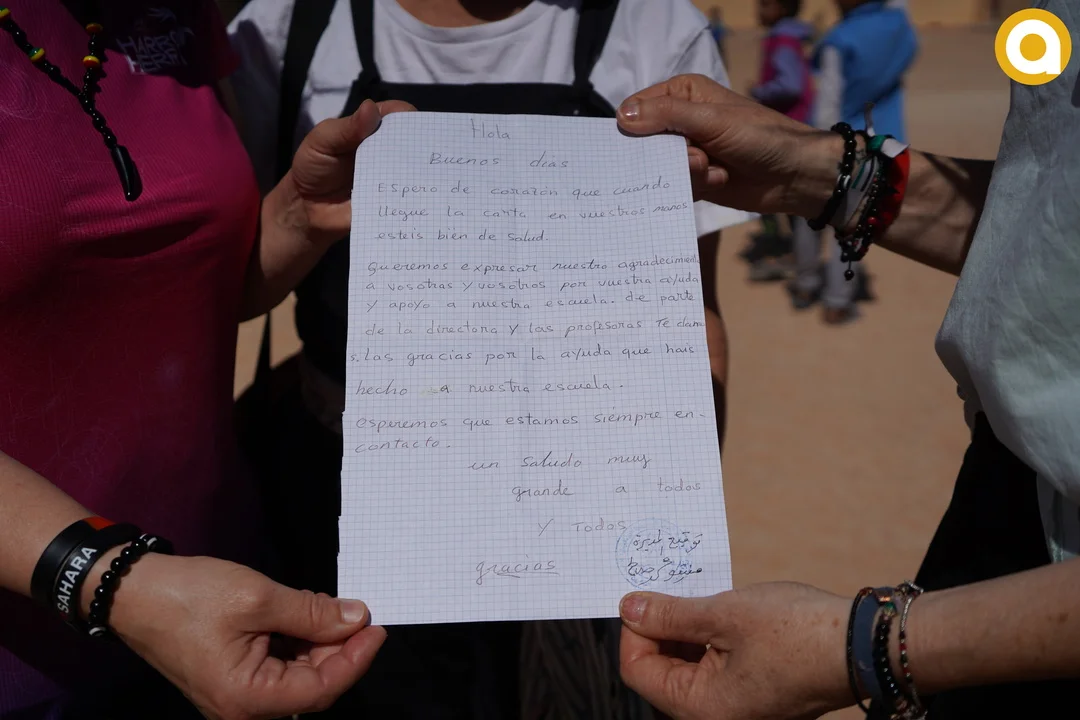 Hola
Buenos dias
Espero de corazón que cuando
llegue la carta en vuestros manos
esteis bien de salud.
Queremos expresar nuestro agradecimiento
a vosotras y vosotros por vuestra ayuda
y apoyo a nuestra escuela. de parte
de la directora y las profesoras Te damo
s. las gracias por la ayuda que hais
hecho a nuestra escuela.
esperemos que estamos siempre en-
contacto.
un saludo muy
grande a todos
y Todas
gracias
توقيع المديرة
SAHARA
a